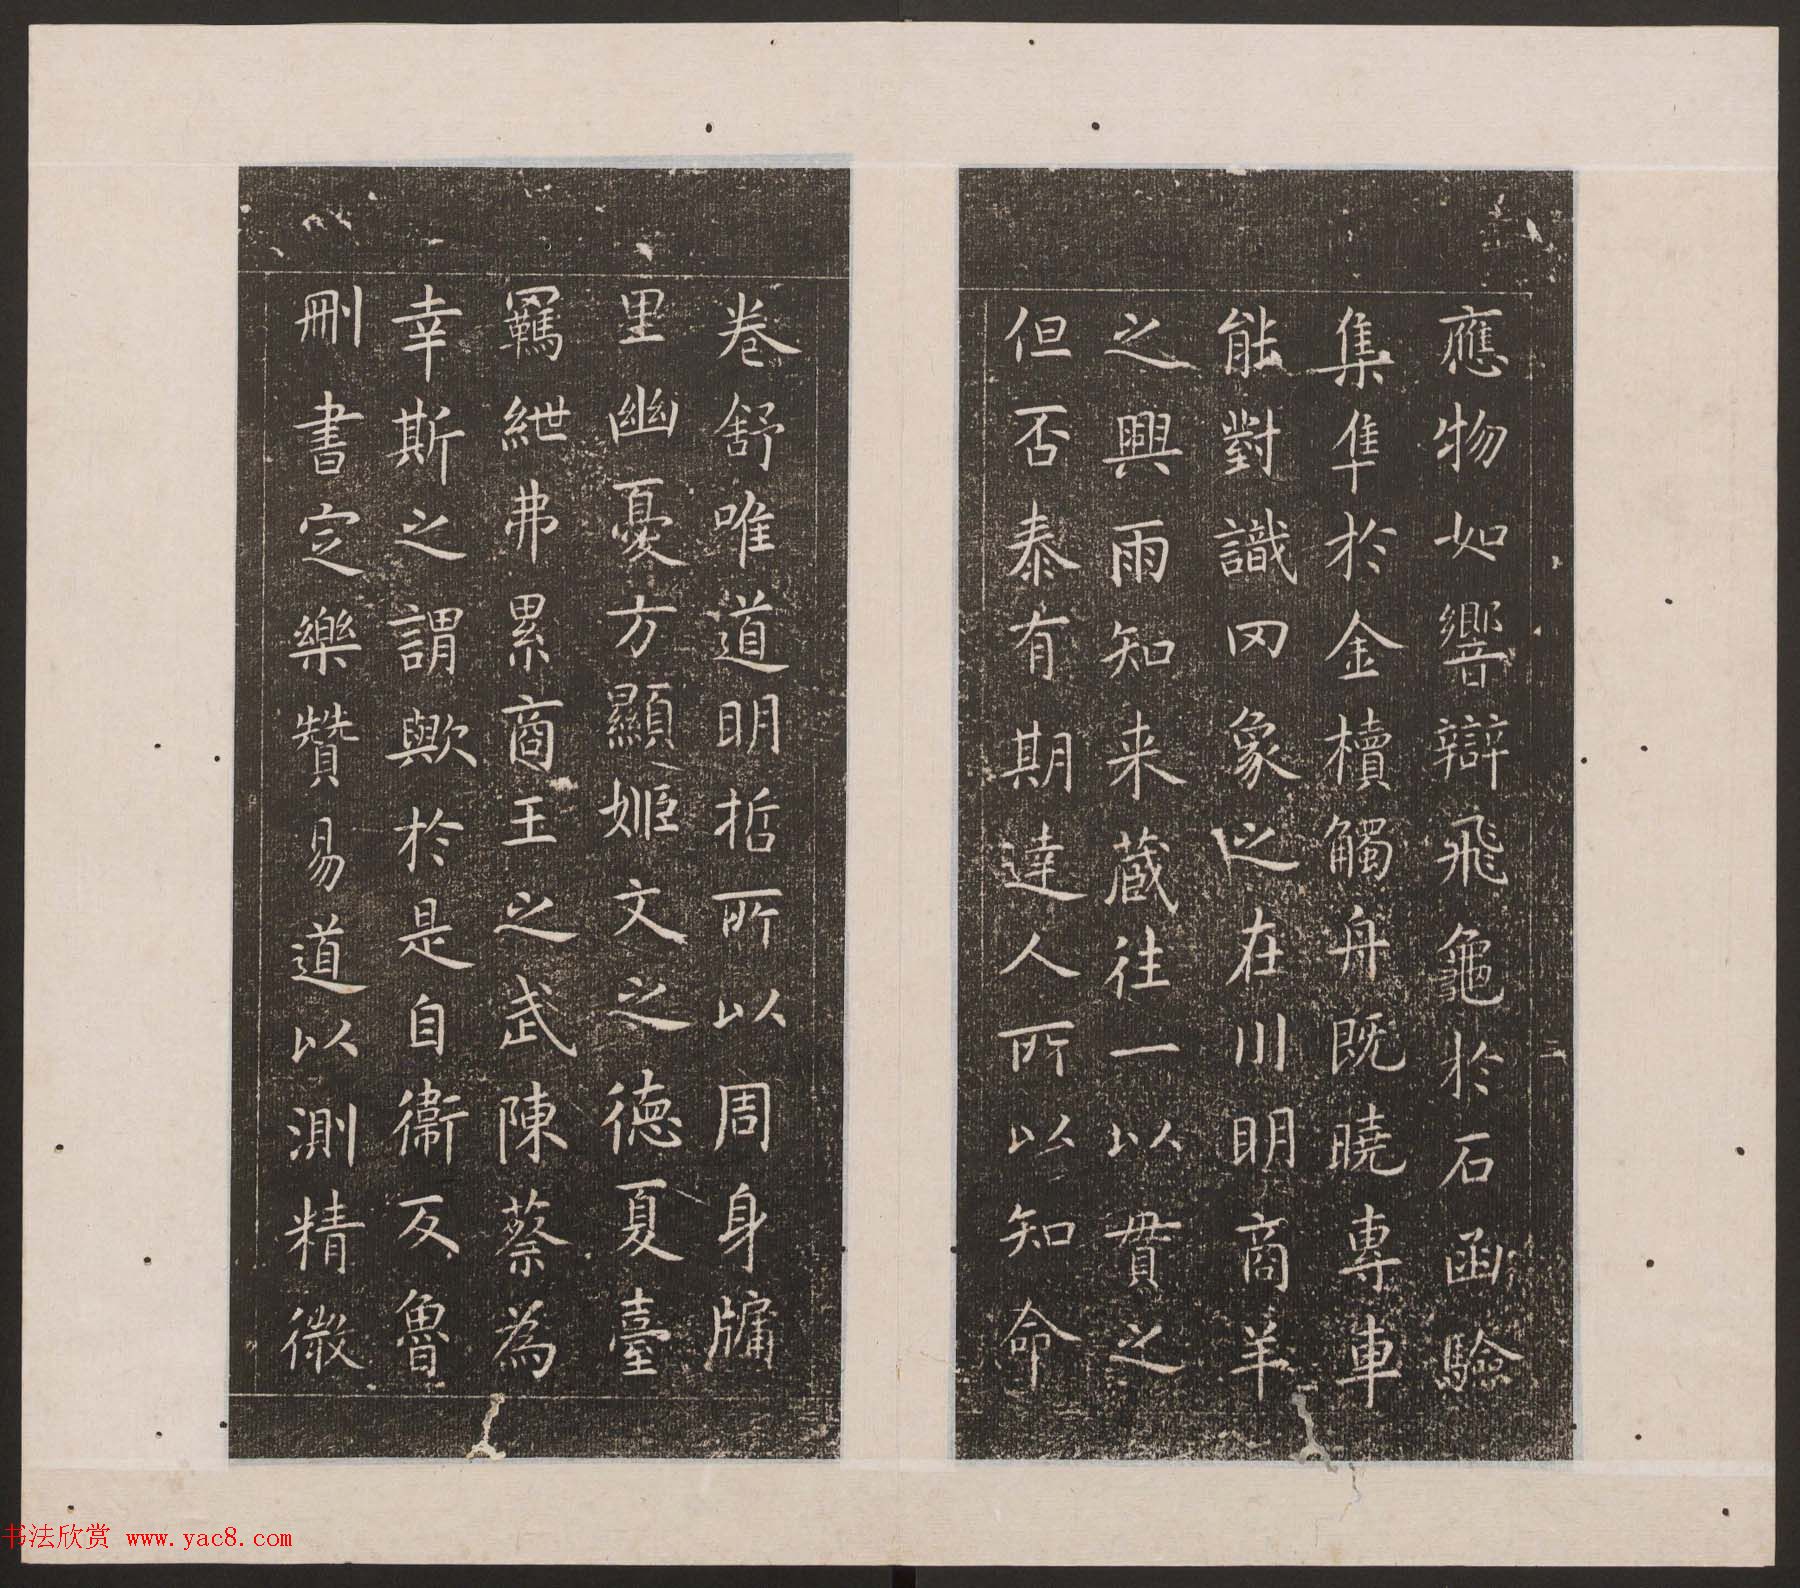 應物如響辯飛龜於石函驗
集隼於金櫝觸舟既曉專車
能對識罔象之在川明商羊
之興雨知来蔵往一以貫之
但否泰有期達人所以知命
卷舒唯道明哲所以周身牖
里幽憂方顯姬文之德夏臺
羈紲弗累商王之武陳蔡為
幸斯之謂歟於是自衞反魯
刪書定樂贊易道以測精微
二
书法欣赏 www.yac8.com